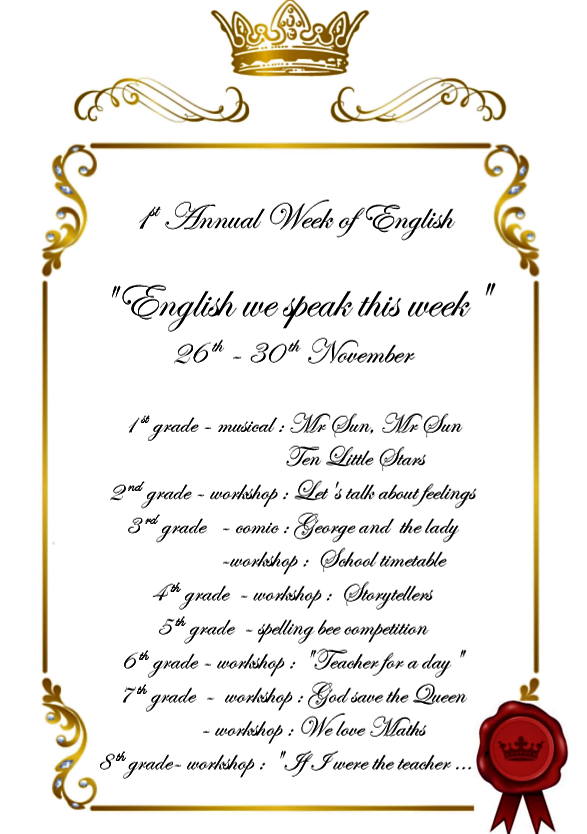 1st Annual Week of English
"English we speak this week "
26th - 30th November
1st grade - musical : Mr Sun, Mr Sun
Ten Little Stars
2nd grade - workshop : Let's talk about feelings
3rd grade - comic : George and the lady
-workshop : School timetable
4th grade - workshop : Storytellers
5th grade - spelling bee competition
6th grade - workshop : "Teacher for a day "
7th grade - workshop : God save the Queen
- workshop : We love Maths
8th grade- workshop : "If I were the teacher ...